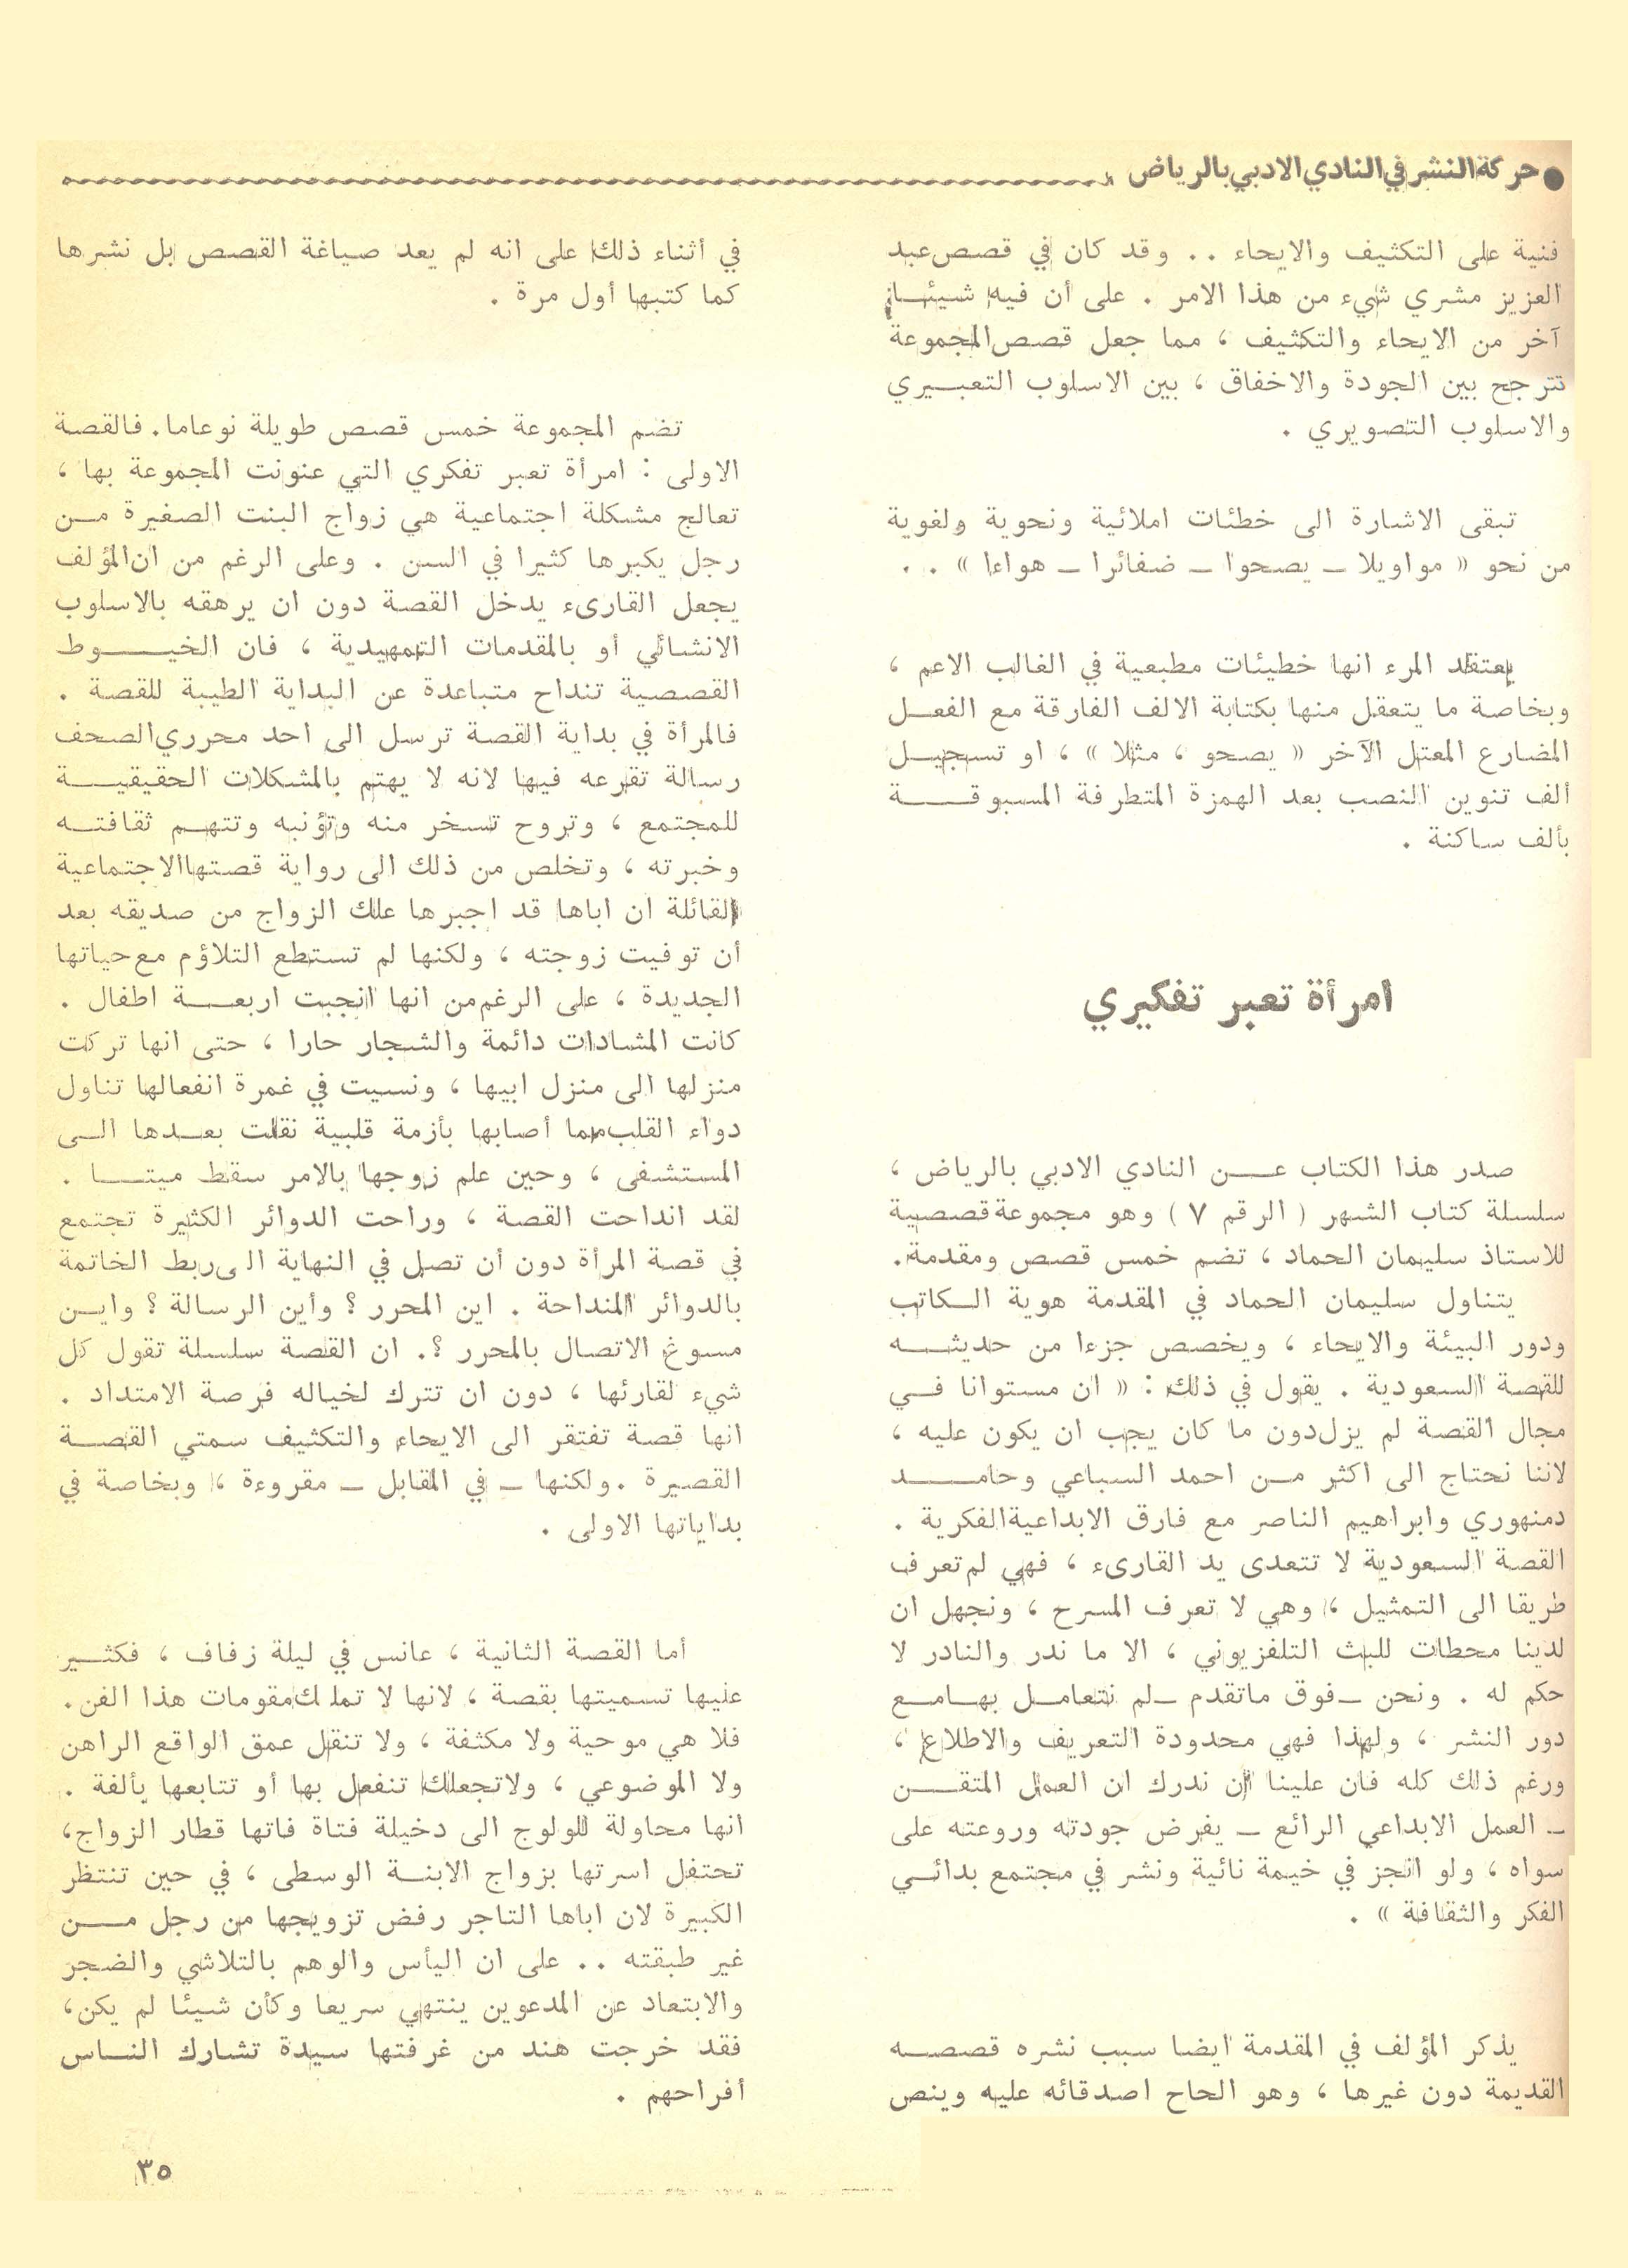 ● حركة النشر في النادي الادبي بالرياض
فنية على التكثيف والايحاء . . وقد كان في قصص عبد
العزيز مشري شيء من هذا الامر . على أن فيه شيئا
آخر من الايحاء والتكثيف ، مما جعل قصص المجموعة
تترجح بين الجودة والاخفاق ، بين الاسلوب التعبيري
والاسلوب التصويري .
تبقى الاشارة الى خطئات املائية ونحوية ولغوية
من نحو « مواويلا ـ يصحوا ـ ضفائرا ـ هواءا » . .
يعتقد المرء انها خطيئات مطبعية في الغالب الاعم ،
وبخاصة ما يتعقل منها بكتابة الالف الفارقة مع الفعل
المضارع المعتل الآخر « يصحو ، مثلا » ، او تسجيل
ألف تنوين النصب بعد الهمزة المتطرفة المسبوقة
بألف ساكنة .
امرأة تعبر تفكيري
صدر هذا الكتاب عن النادي الادبي بالرياض ،
سلسلة كتاب الشهر ( الرقم ٧ ) وهو مجموعة قصصية
للاستاذ سليمان الحماد ، تضم خمس قصص ومقدمة .
يتناول سليمان الحماد في المقدمة هوية الكاتب
ودور البيئة والايحاء ، ويخصص جزءا من حديثه
للقصة السعودية . يقول في ذلك : « ان مستوانا في
مجال القصة لم يزل دون ما كان يجب ان يكون عليه ،
لاننا نحتاج الى اكثر من احمد السباعي وحامد
دمنهوري وابراهيم الناصر مع فارق الابداعية الفكرية .
القصة السعودية لا تتعدى يد القارىء ، فهي لم تعرف
طريقا الى التمثيل ، وهي لا تعرف المسرح ، ونجهل ان
لدينا محطات للبث التلفزيوني ، الا ما ندر والنادر لا
حكم له . ونحن ـ فوق ما تقدم ـ لم نتعامل بها مع
دور النشر ، ولهذا فهي محدودة التعريف والاطلاع ،
ورغم ذلك كله فان علينا ان ندرك ان العمل المتقن
ـ العمل الابداعي الرائع ـ يفرض جودته وروعته على
سواه ، ولو انجز في خيمة نائية ونشر في مجتمع بدائي
الفكر والثقافة » .
يذكر المؤلف في المقدمة ايضا سبب نشره قصصه
القديمة دون غيرها ، وهو الحاح اصدقائه عليه وينص
في أثناء ذلك على انه لم يعد صياغة القصص بل نشرها
كما كتبها أول مرة .
تضم المجموعة خمس قصص طويلة نوعاما . فالقصة
الاولى : امرأة تعبر تفكري التي عنونت المجموعة بها ،
تعالج مشكلة اجتماعية هي زواج البنت الصغيرة من
رجل يكبرها كثيرا في السن . وعلى الرغم من ان المؤلف
يجعل القارىء يدخل القصة دون ان يرهقه بالاسلوب
الانشائي أو بالمقدمات التمهيدية ، فان الخيوط
القصصية تنداح متباعدة عن البداية الطيبة للقصة .
فالمرأة في بداية القصة ترسل الى احد محرري الصحف
رسالة تقرعه فيها لانه لا يهتم بالمشكلات الحقيقية
للمجتمع ، وتروح تسخر منه وتؤنبه وتتهم ثقافته
وخبرته ، وتخلص من ذلك الى رواية قصتها الاجتماعية
القائلة ان اباها قد اجبرها علك الزواج من صديقه بعد
أن توفيت زوجته ، ولكنها لم تستطع التلاؤم مع حياتها
الجديدة ، على الرغم من انها انجبت اربعة اطفال .
كانت المشادات دائمة والشجار حارا ، حتى انها تركت
منزلها الى منزل ابيها ، ونسيت في غمرة انفعالها تناول
دواء القلب مما أصابها بأزمة قلبية نقلت بعدها الى
المستشفى ، وحين علم زوجها بالامر سقط ميتا .
لقد انداحت القصة ، وراحت الدوائر الكثيرة تجتمع
في قصة المرأة دون أن تصل في النهاية الى ربط الخاتمة
بالدوائر المنداحة . اين المحرر ؟ وأين الرسالة ؟ واين
مسوغ الاتصال بالمحرر ؟. ان القصة سلسلة تقول كل
شيء لقارئها ، دون ان تترك لخياله فرصة الامتداد .
انها قصة تفتقر الى الايحاء والتكثيف سمتي القصة
القصيرة . ولكنها ـ في المقابل ـ مقروءة ، وبخاصة في
بداياتها الاولى .
أما القصة الثانية ، عانس في ليلة زفاف ، فكثير
عليها تسميتها بقصة ، لانها لا تملك مقومات هذا الفن .
فلا هي موحية ولا مكثفة ، ولا تنقل عمق الواقع الراهن
ولا الموضوعي ، ولا تجعلك تنفعل بها أو تتابعها بألفة .
انها محاولة للولوج الى دخيلة فتاة فاتها قطار الزواج ،
تحتفل اسرتها بزواج الابنة الوسطى ، في حين تنتظر
الكبيرة لان اباها التاجر رفض تزويجها من رجل من
غير طبقته . . على ان اليأس والوهم بالتلاشي والضجر
والابتعاد عن المدعوين ينتهي سريعا وكأن شيئا لم يكن ،
فقد خرجت هند من غرفتها سيدة تشارك الناس
أفراحهم .
٣٥